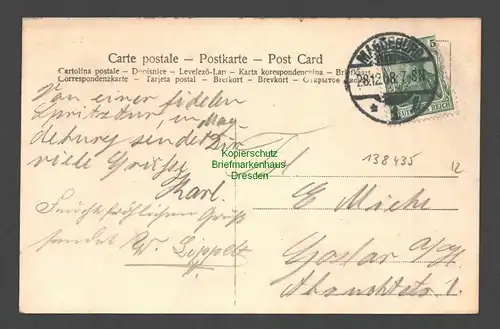 Carte postale – Postkarte – Post Card
Cartolina postale – Dopisnice – Levelező-Lap – Karta korespondencyjna – Briefkaart
Correspondenzkarte – Tarjeta postal – Brefkort – Brevkort – Открытое
MAGDEBURG
28.12.08. 7-8N.
5
Von einer fidelen
Spritztour, in Mag
deburg sendet Dir
viele Grüsse
Karl.
Feuchtfröhlichen Gruß
sendet W. Lippelt
Kopierschutz
Briefmarkenhaus
Dresden
138435
12
H
E Miehe
Goslar a/H